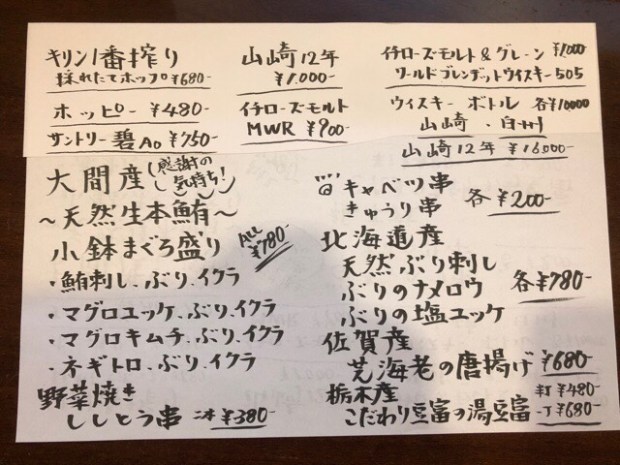 キリン1番搾り
採れたてホップ¥680-
ホッピー ¥480-
サントリー碧Ao ¥750-
山崎12年
¥1.000-
イチローズモルト
MWR ¥900-
イチローズモルト&グレーン ¥1,000
ワールドブレンデットウイスキー505
ウイスキー ボトル 各¥10000
山崎・白州
山崎12年 ¥16000-
大間産(感謝の気持ち!)
〜天然生本鮪〜
小鉢まぐろ盛り ALL ¥780-
・鮪刺し、ぶり、イクラ
・マグロユッケ、ぶり、イクラ
・マグロキムチ、ぶり、イクラ
・ネギトロ、ぶり、イクラ
野菜焼き
ししとう串 二本 ¥380-
キャベツ串
きゅうり串 各¥200-
北海道産
天然ぶり刺し
ぶりのナメロウ 各¥780-
ぶりの塩ユッケ
佐賀産
芝海老の唐揚げ ¥680-
栃木産
こだわり豆富の湯豆富 半丁¥480- 一丁¥680-